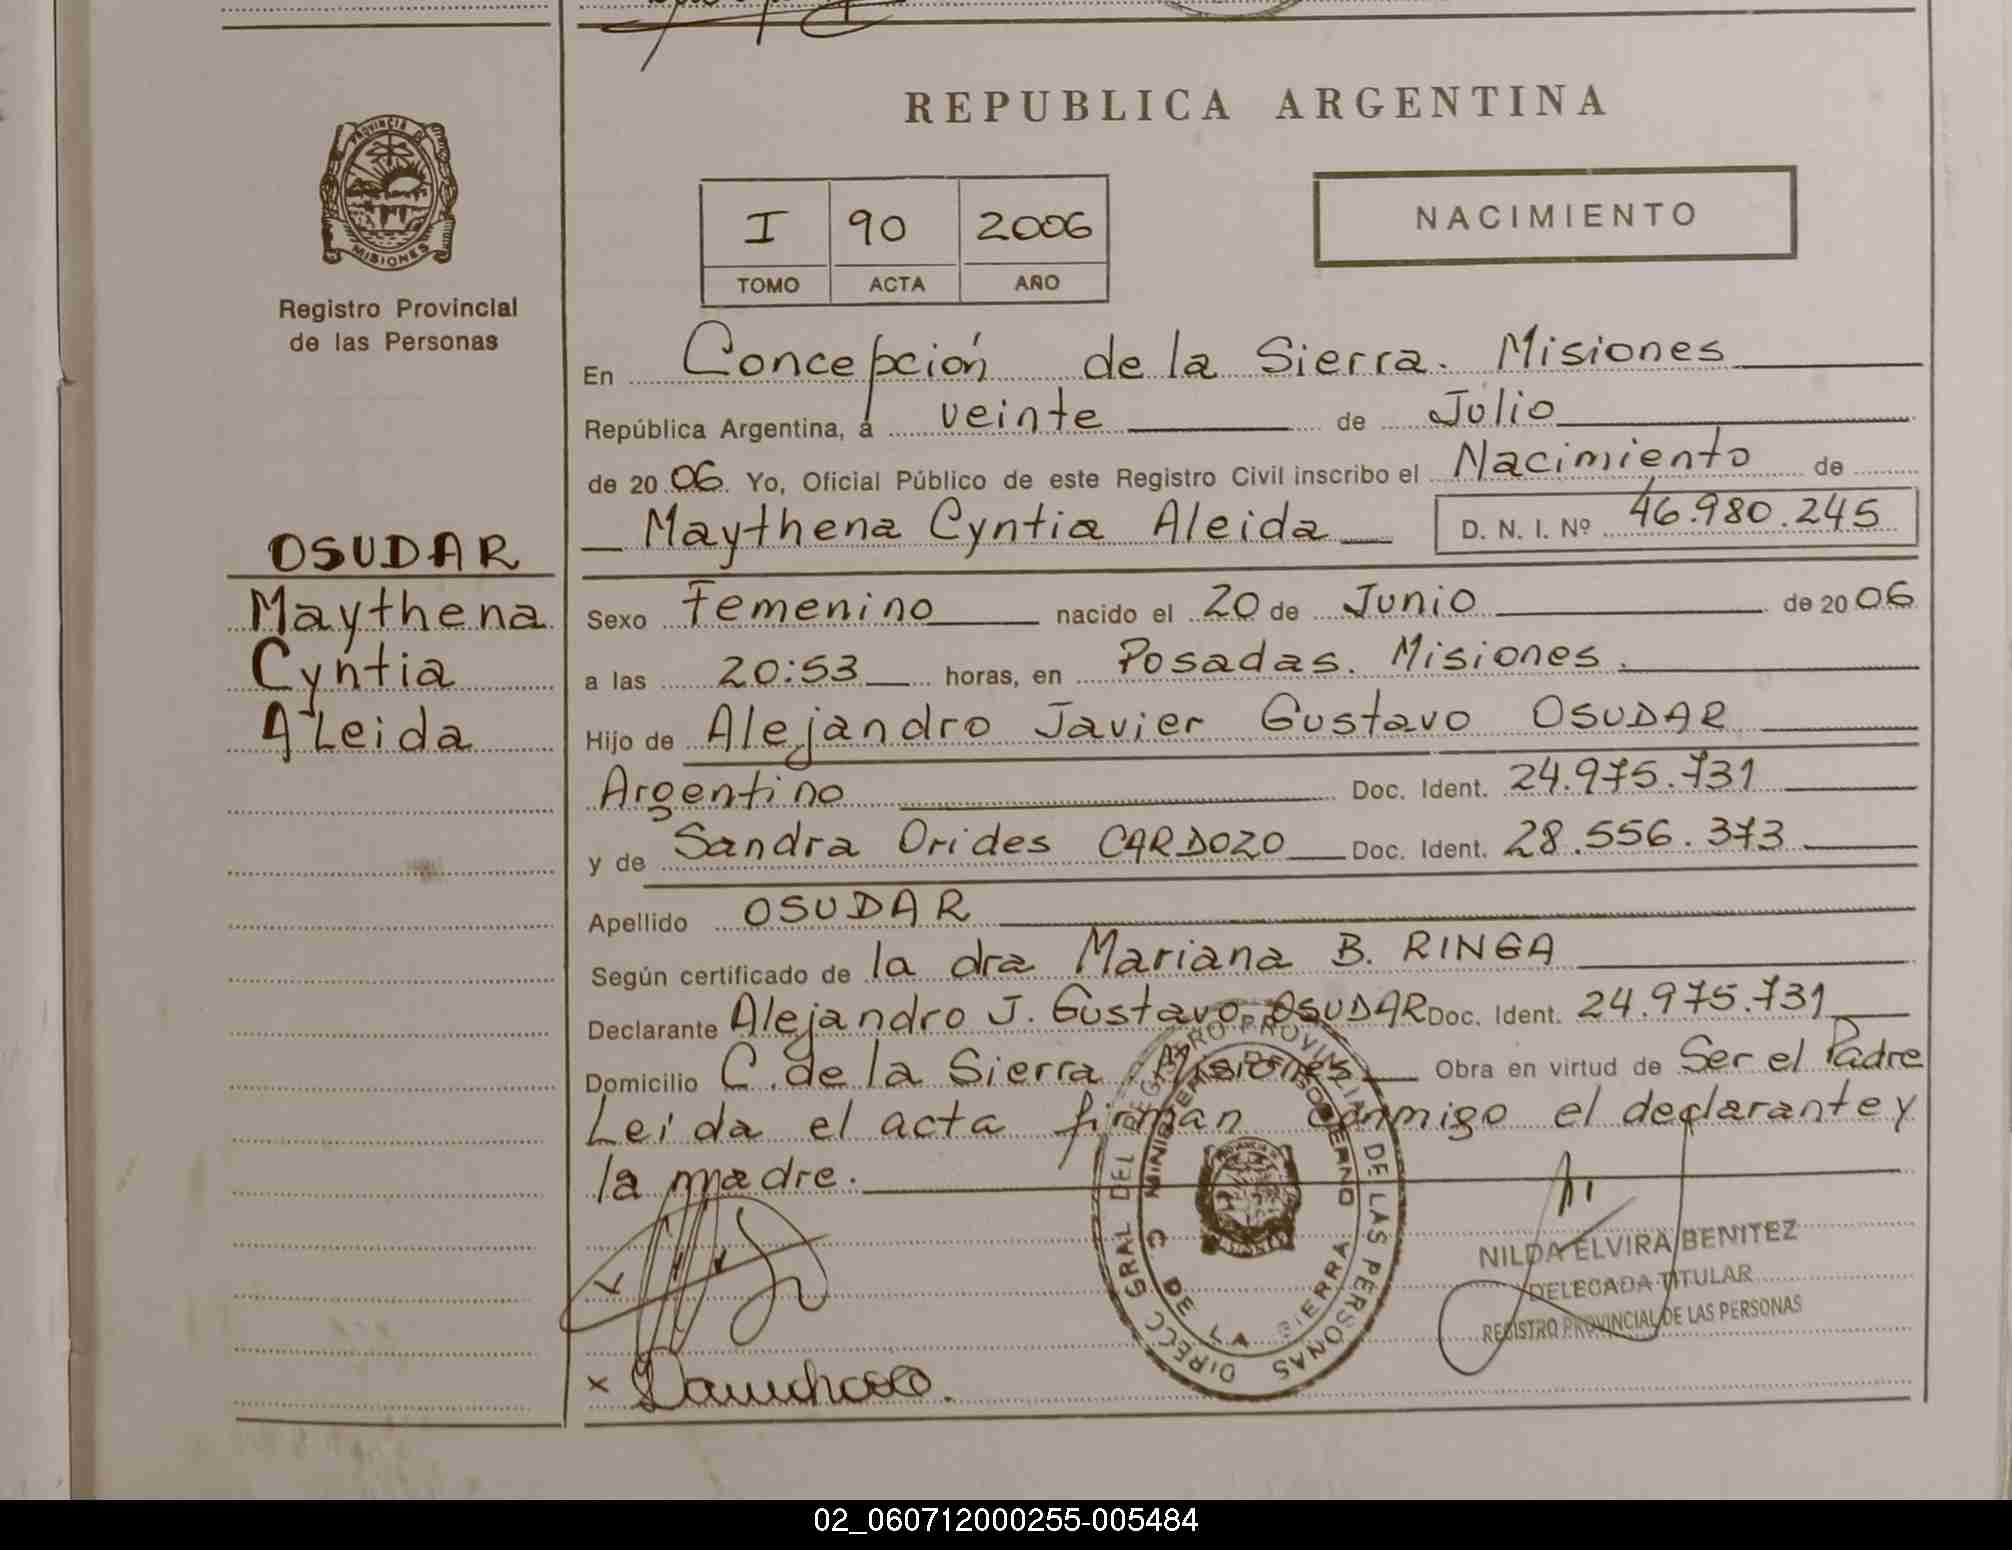 REPUBLICA ARGENTINA
PROVINCIA DE MISIONES
Registro Provincial
de las Personas
I 90 2006
TOMO ACTA AÑO
NACIMIENTO
En Concepción de la Sierra. Misiones
República Argentina, á veinte de Julio
de 2006. Yo, Oficial Público de este Registro Civil inscribo el Nacimiento de
Maythena Cyntia Aleida D. N. I. Nº 46.980.245
OSUDAR
Maythena
Cyntia
ALeida
Sexo Femenino nacido el 20 de Junio de 2006
a las 20:53 horas, en Posadas. Misiones.
Hijo de Alejandro Javier Gustavo OSUDAR
Argentino Doc. Ident. 24.975.731
y de Sandra Orides CARDOZO Doc. Ident. 28.556.373
Apellido OSUDAR
Según certificado de la dra Mariana B. RINGA
Declarante Alejandro J. Gustavo OSUDAR Doc. Ident. 24.975.731
Domicilio C. de la Sierra Misiones Obra en virtud de Ser el Padre
Leida el acta firman conmigo el declarante y
la madre.
DIRECC GRAL DEL REGISTRO PROVINCIAL DE LAS PERSONAS
MINISTERIO DE GOBIERNO
C DE LA SIERRA
NILDA ELVIRA BENITEZ
DELEGADA TITULAR
REGISTRO PROVINCIAL DE LAS PERSONAS
02_060712000255-005484